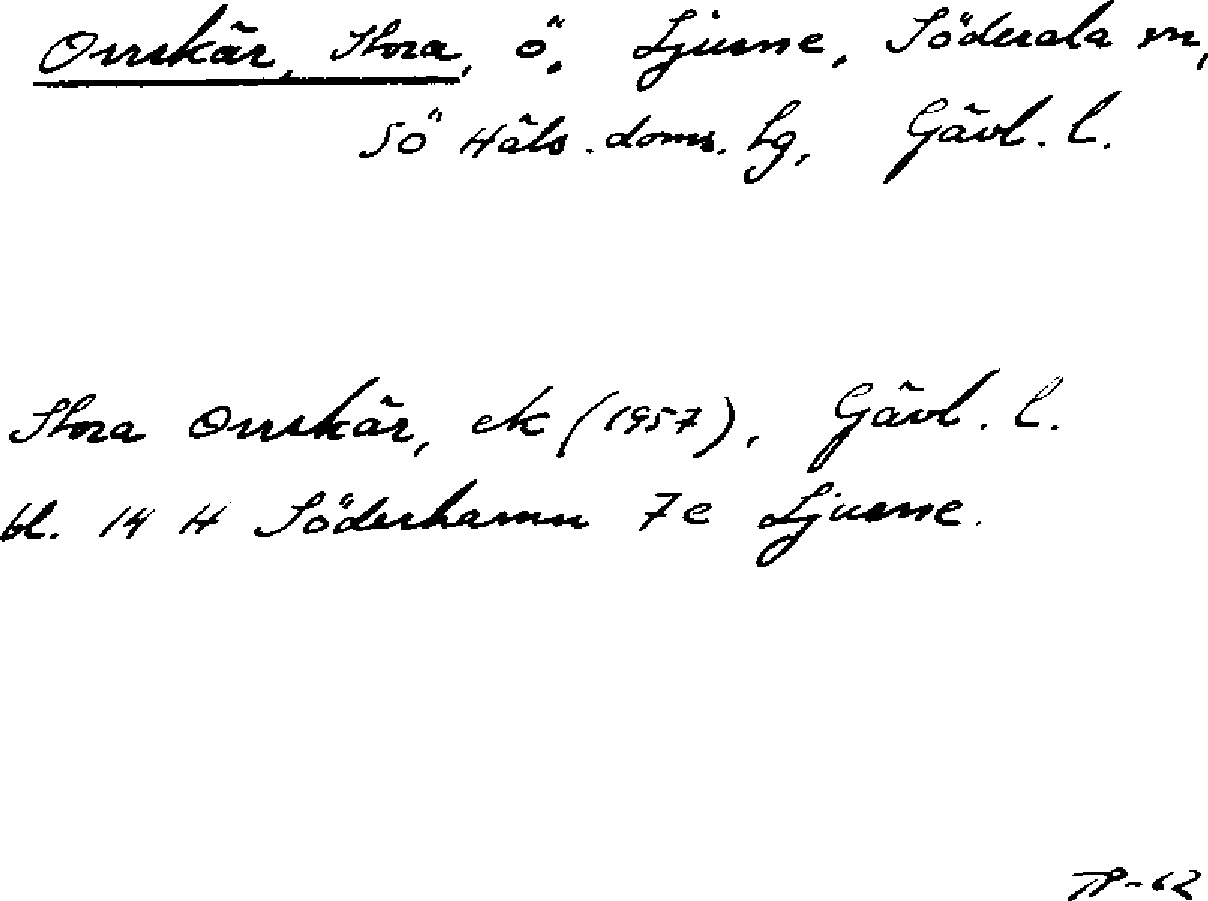 Orrskär, Stora, ö, Ljusne, Söderala sn,
SÖ Häls. doms. lg, Gävl. l.
Stora Orrskär, ek (1957), Gävl. l.
bl. 14 H Söderhamn 7e Ljusne.